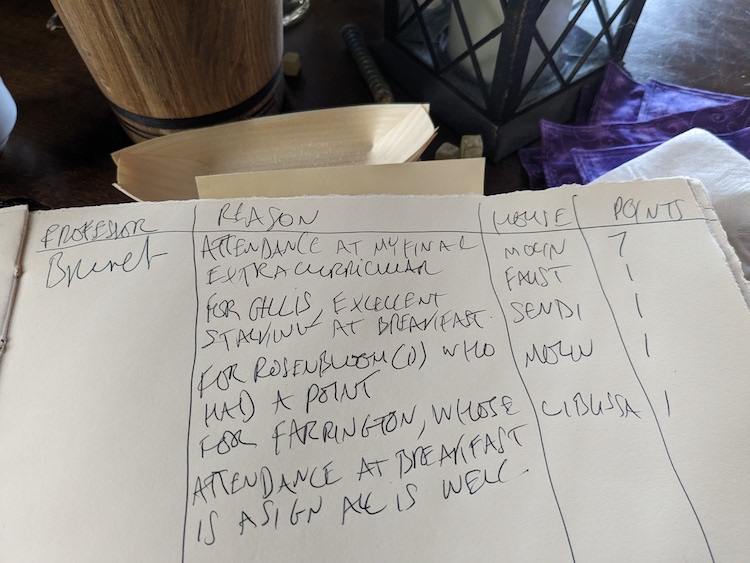 PROFESSOR REASON HOUSE POINTS
Brunet ATTENDANCE AT MY FINAL MOLIN 7
EXTRACURRICULAR FAUST 1
FOR GILLIS, EXCELLENT SENDI 1
STALKING AT BREAKFAST.
FOR ROSENBLOOM (D) WHO MOLIN 1
HAD A POINT
FOR FARRINGTON, WHOSE LIBUSSA 1
ATTENDANCE AT BREAKFAST
IS A SIGN ALL IS WELL.